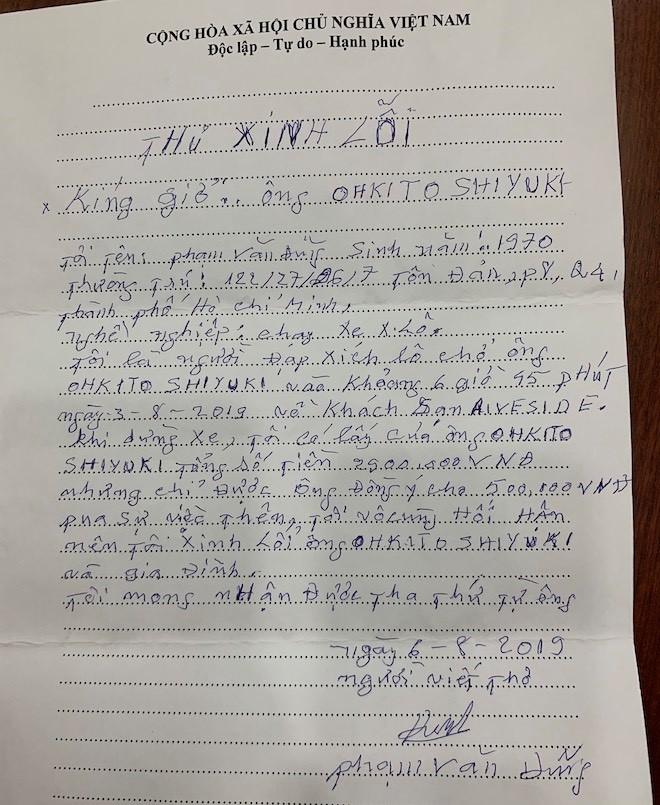 CỘNG HÒA XÃ HỘI CHỦ NGHĨA VIỆT NAM
Độc lập – Tự do – Hạnh phúc
THƯ XINH LỖI
x Kính giở.. ông OHKITO SHIYUKI
Tôi tên: phạm Văn Dũng Sinh năm: 1970
Thường trú: 122/27/26/7 Tôn Đản, p8, Q4,
thành phố Hồ chí Minh.
nghề nghiệp: chạy xe x.Lô.
Tôi là người Đáp xích lô chở ông
OHKITO SHIYUKI vào khoảng 6 giờ 45 PHÚT
ngày 3-8-2019 về khách sạn RIVESIDE.
khi dừng xe, tôi có lấy của ông OHKITO
SHIYUKI tổng số tiền 2900.000 VNĐ
nhưng chỉ được ông đồng ý cho 500.000 VNĐ
qua sự việc trên, tôi vô cùng Hối HẬN
nên tôi xinh Lỗi ông OHKITO SHIYUKI
và gia Đình.
Tôi mong nHận Được tha thứ từ ông
ngày 6-8-2019
người viết thơ
phạm Văn Dũng